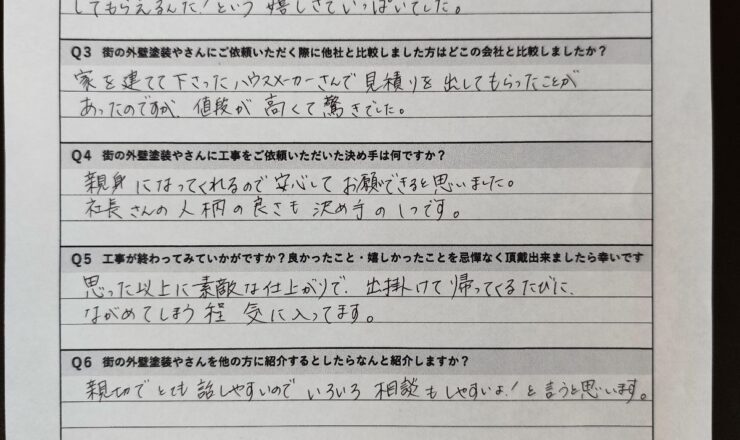 してもらえるんだ！という 嬉しさでいっぱいでした。
Q3 街の外壁塗装やさんにご依頼いただく際に他社と比較しました方はどこの会社と比較しましたか？
家を建てて下さったハウスメーカーさんで見積りを出してもらったことが
あったのですが、値段が高くて驚きでした。
Q4 街の外壁塗装やさんに工事をご依頼いただいた決め手は何ですか？
親身になってくれるので安心してお願いできると思いました。
社長さんの人柄の良さも決め手の1つです。
Q5 工事が終わってみていかがですか？良かったこと・嬉しかったことを忌憚なく頂戴出来ましたら幸いです
思った以上に素敵な仕上がりで、出掛けて帰ってくるたびに、
ながめてしまう程 気に入ってます。
Q6 街の外壁塗装やさんを他の方に紹介するとしたらなんと紹介しますか？
親切でとても話しやすいのでいろいろ相談もしやすいよ！と言うと思います。